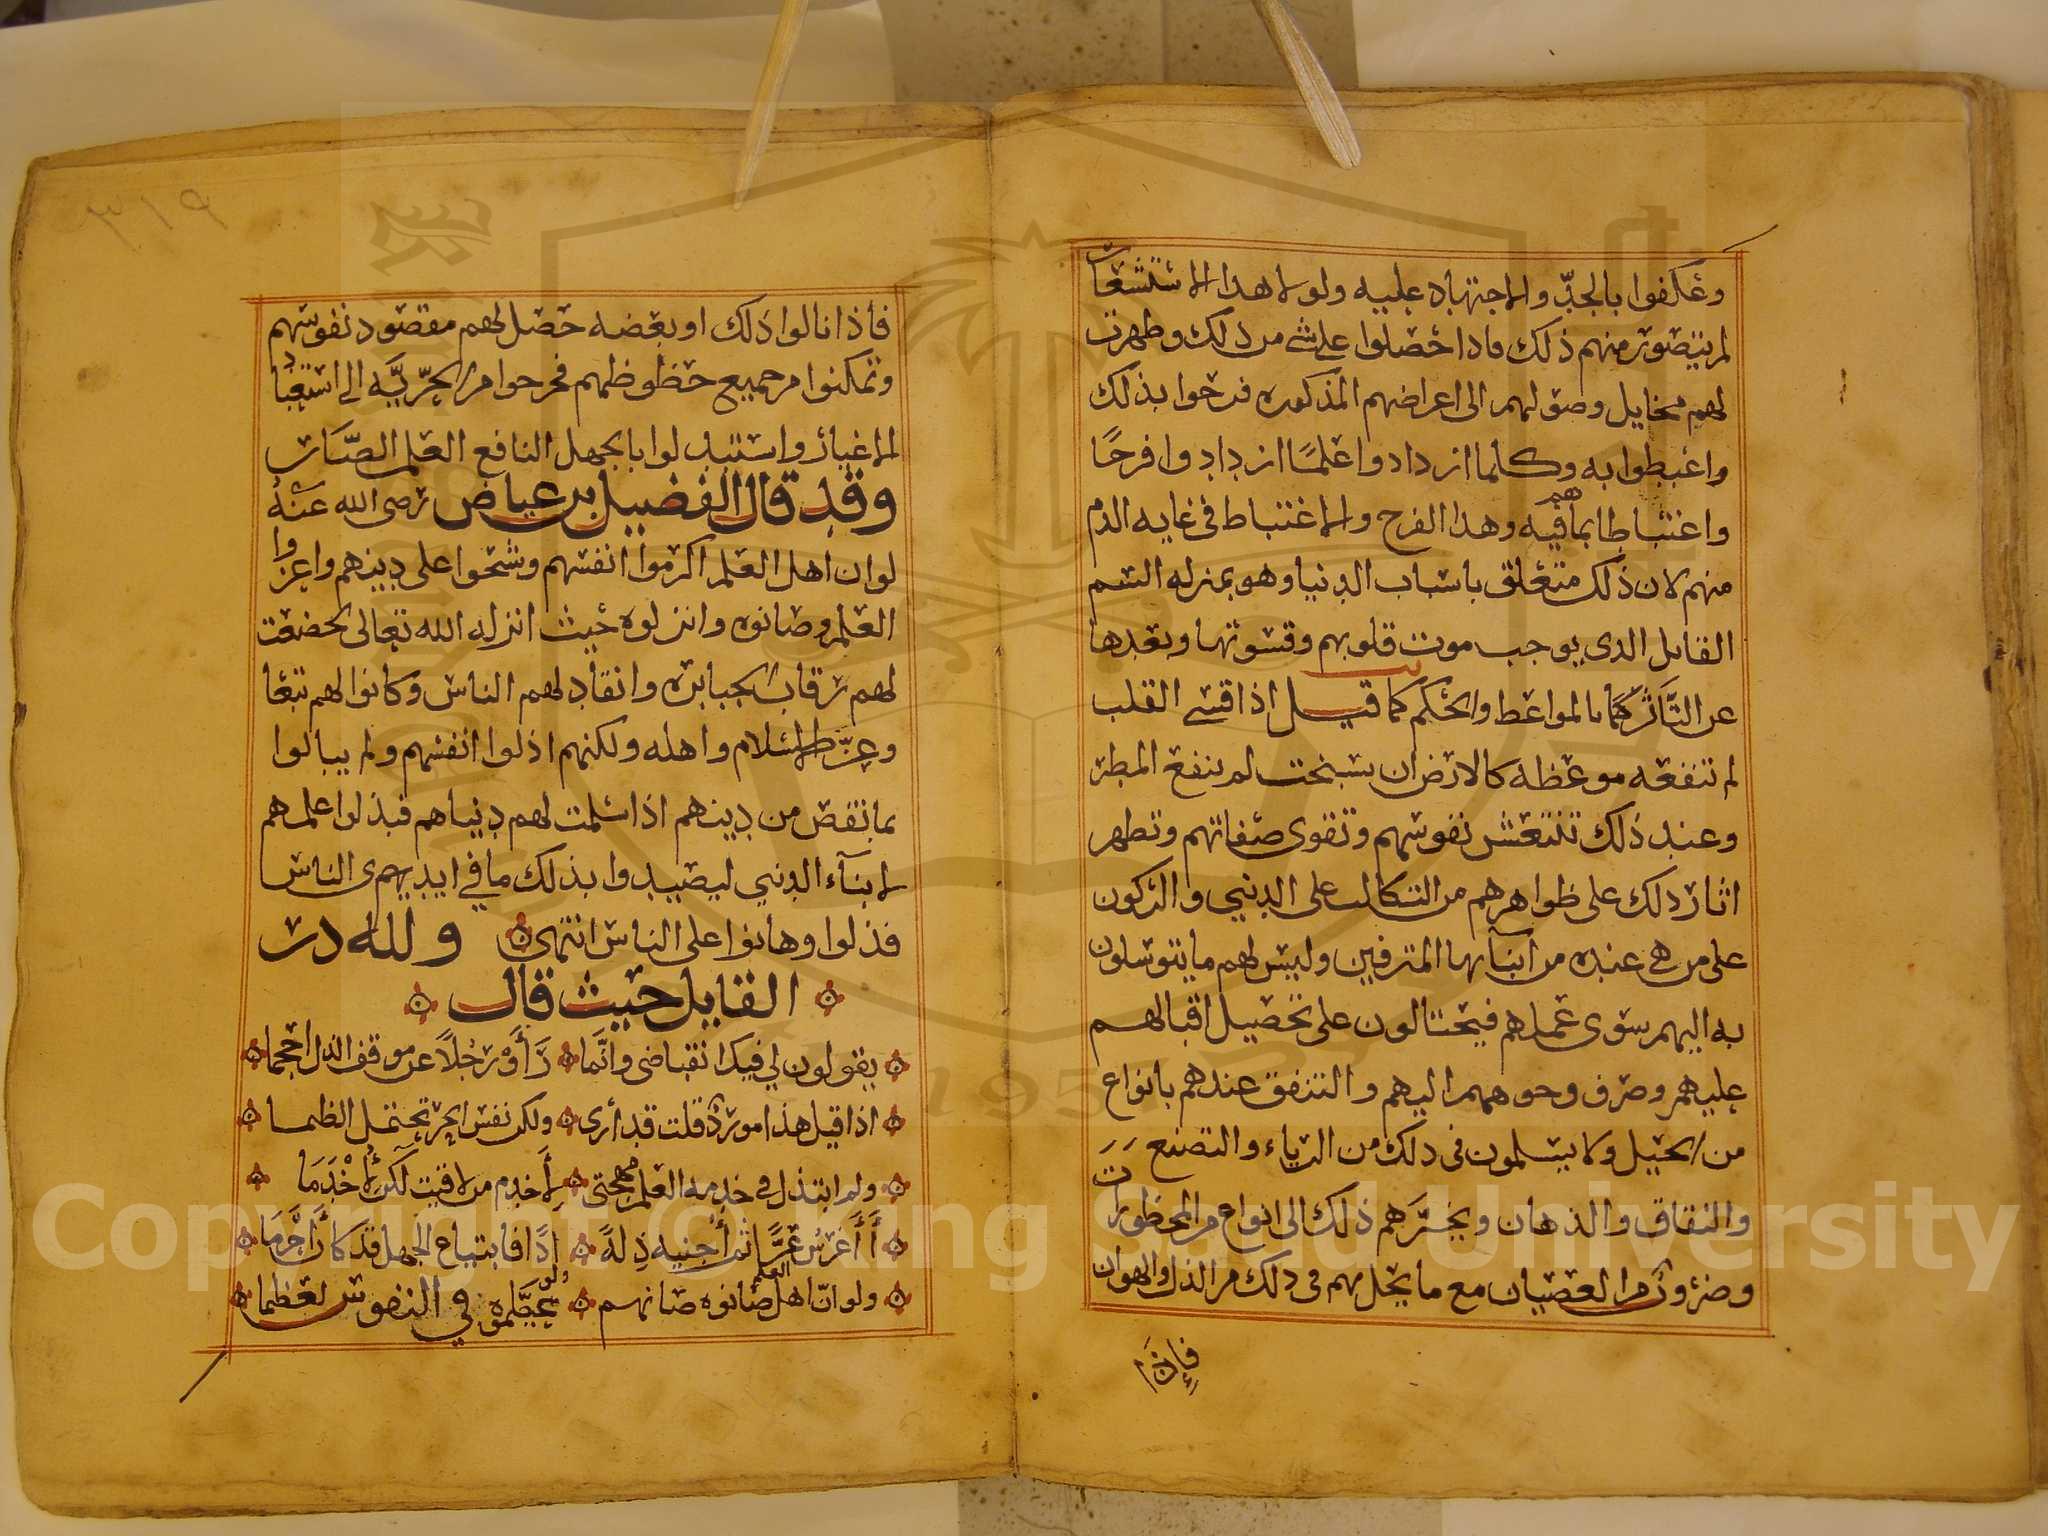 وعكفوا بالجدّ والاجتهاد عليه ولولا هذا الاستشعار
لم يتصور منهم ذلك فاذا حصلوا على شي من ذلك وظهرت
لهم مخايل وصولهم الى اغراضهم المذكوره فرحوا بذلك
واغبطوا به وكلما ازدادوا علمًا ازدادوا فرحًا
واغتباطا بما هم فيه وهذا الفرح والاغتباط في غايه الذم
منهم لان ذلك متعلق باسباب الدنيا وهو بمنزله السم
القاتل الذي يوجب موت قلوبهم وقسوتها وبعدها
عن التَّأثر بالمواعظ والحكم كما قيل اذا قسى القلب
لم تنفعه موعظه كالارض ان سبخت لم ينفع المطر
وعند ذلك تنتعش نفوسهم وتقوى صفاتهم وتظهر
اثار ذلك على ظواهرهم من التكالب على الدنيي والركون
على من هي عنده من ابنآئها المترفين وليس لهم ما يتوسلون
به اليهم سوى علمهم فيحتالون على تحصيل اقبالهم
عليهم وصرف وجوههم اليهم والتنفق عندهم بانواع
من الحيل ولا يسلمون في ذلك من الرياء والتصنع
والنفاق والدهان ويجرّهم ذلك الى انواع من المحظورات
وضروب من العصيان مع ما يحل بهم في ذلك من الذل والهوان
فإذا
٣١٩
فأذا نالوا ذلك او بعضه حصل لهم مقصود نفوسهم
وتمكنوا من جميع حظوظهم فخرجوا من الحرّيَّه الى استعباد
الاغيار واستبدلوا بالجهل النافع العلم الضّار
وقد قال الفضيل بن عياض رضى الله عنه
لو ان اهل العلم اكرموا انفسهم وشحوا على دينهم واعزوا
العلم وصانوه وانزلوه حيث انزله الله تعالى لخضعت
لهم رقاب الجبابره وانقاد لهم الناس وكانوا لهم تبعا
وعزّ الاسلام واهله ولكنهم اذلوا انفسهم ولم يبالوا
بما نقص من دينهم اذا سلمت لهم دنياهم فبذلوا علمهم
لابنآء الدنيي ليصيبوا بذلك ما في ايديهم ى الناس
فذلوا وهانوا على الناس انتهى ولله در
القايل حيث قال
يقولون لي فيك انقباضى وانَّما رَأَوْ رجُلاً عن موقف الذل احجما
اذا قيل هذا مورد قلت قد أرى ولكن نفس الحر تحتمل الظما
ولم ابتذل في خدمه العلم مهجتى لأَخدم من لاقيت لكن لأُخْدَمَا
أَأَغرسُ عزًّا ثم أَجنيه ذِلةً إذًا فابتياع الجهل قد كان احزَمَا
ولو انّ اهل العلم صانوه صانهم ولو عظَّموه في النفوس لعظما
Copyright © King Saud University
1957